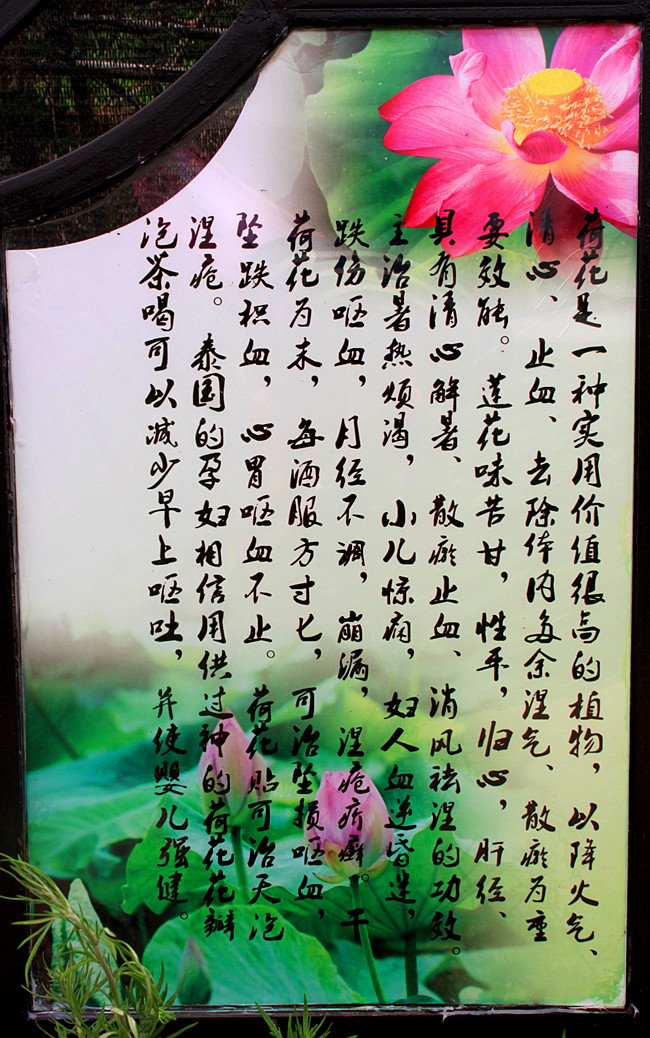 荷花是一种实用价值很高的植物，以降火气、
清心、止血、去除体内多余湿气、散瘀为重
要效能。莲花味苦甘，性平，归心，肝经、
具有清心解暑、散瘀止血、消风祛湿的功效。
主治暑热烦渴，小儿惊痫，妇人血逆昏迷，
跌伤呕血，月经不调，崩漏，湿疮疥癣。干
荷花为末，每酒服方寸匕，可治坠损呕血，
坠跌积血，心胃呕血不止。荷花贴可治天泡
湿疮。泰国的孕妇相信用供过神的荷花花瓣
泡茶喝可以减少早上呕吐，并使婴儿强健。